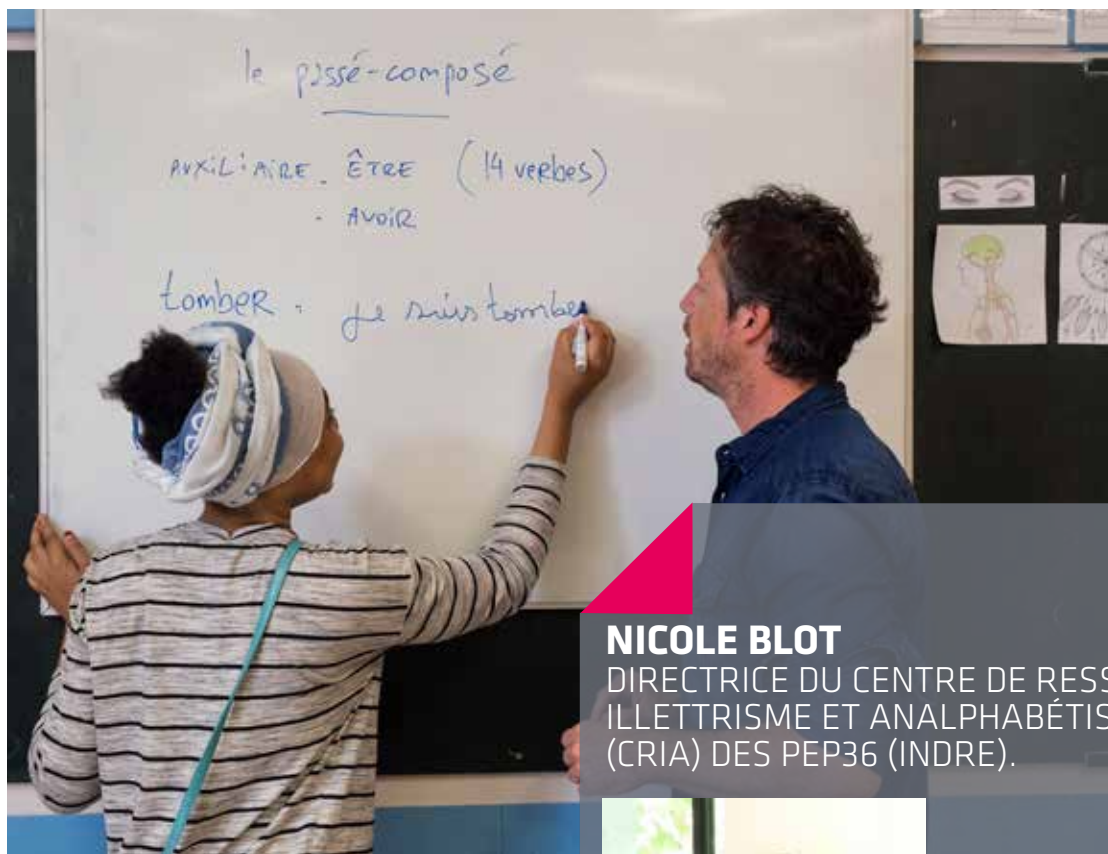 le passé-composé
AUXILIAIRE . ÊTRE (14 verbes)
. AVOIR
tomber . je suis tombe
NICOLE BLOT
DIRECTRICE DU CENTRE DE RESS
ILLETTRISME ET ANALPHABÉTIS
(CRIA) DES PEP36 (INDRE).